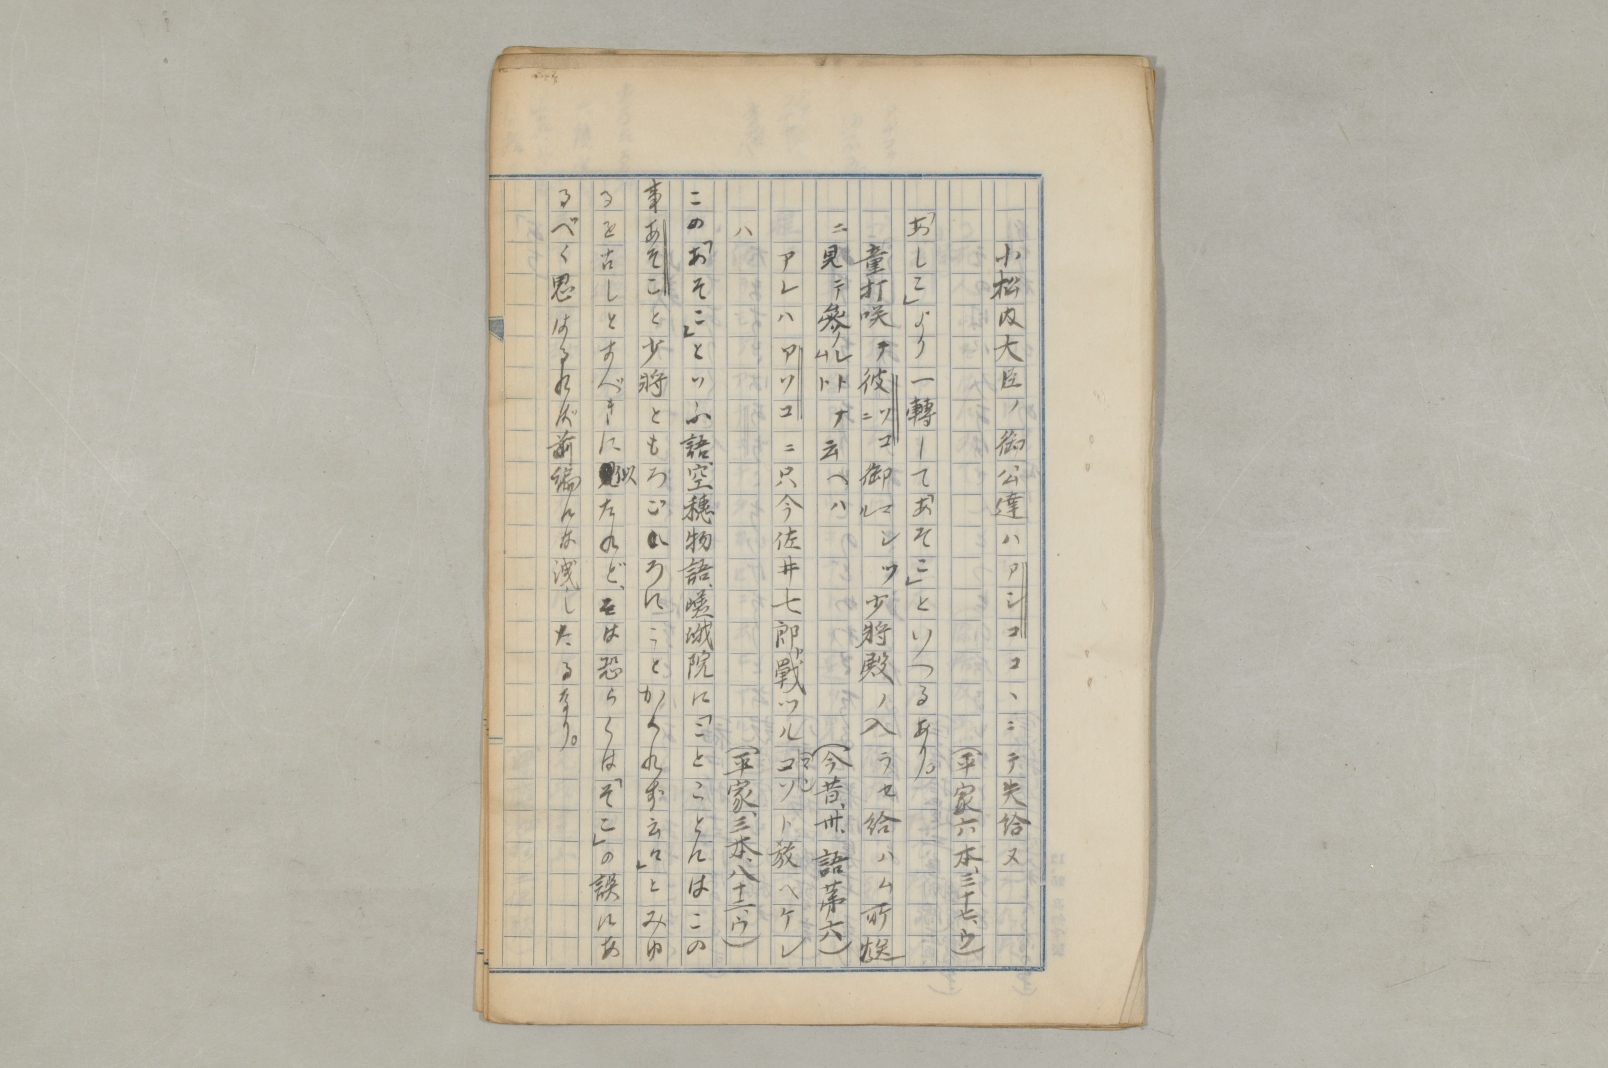 小松内大臣ノ御公達ハアシココヽニテ失給ヌ
(平家六本、三十七、ウ)
「あしこ」より一轉して「あそこ」といへるあり。
童打咲テ彼ソコニ御マシツル少將殿ノ入ラセ給ハム所慥
ニ見テ參レトナム云ヘハ
(今昔、卅、語第六)
アレハアソコニ只今佐井七郎ト戰ツルコソト放ヘケレ
ハ
(平家、三本、八十二、ウ)
この「あそこ」といふ語、空穗物語、嵯峨院に「こと〳〵とんはこの
事あそこと少將ともろこれろにことかくれず云々」とみゆ
るを古しとすべきに似たれど、そは恐らくは「そこ」の誤にあ
るべく思はるれば前編には洩したるなり。